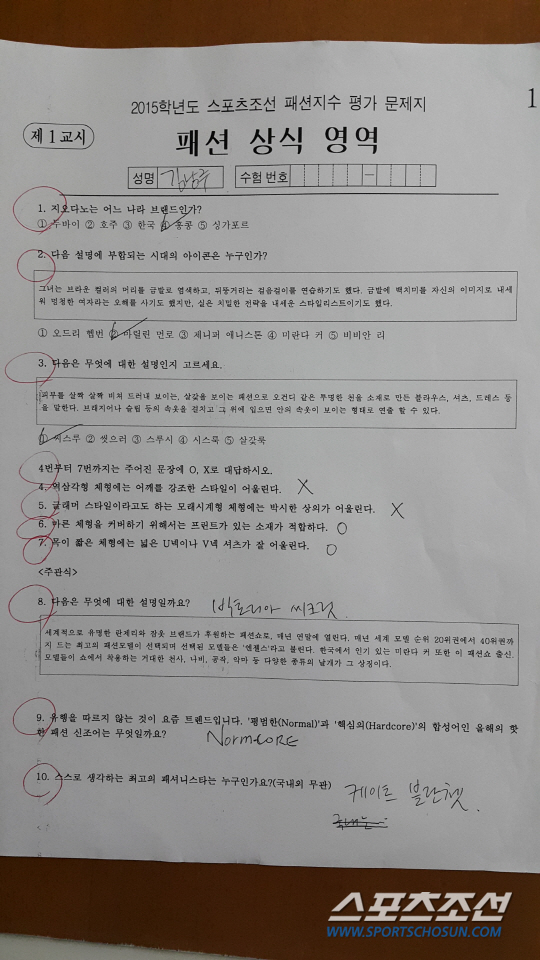 2015학년도 스포츠조선 패션지수 평가 문제지
1
제 1 교시
패션 상식 영역
성명 김남주 수험 번호 –
1. 지오다노는 어느 나라 브랜드인가?
① 두바이 ② 호주 ③ 한국 ④ 홍콩 ⑤ 싱가포르
2. 다음 설명에 부합되는 시대의 아이콘은 누구인가?
그녀는 브라운 컬러의 머리를 금발로 염색하고, 뒤뚱거리는 걸음걸이를 연습하기도 했다. 금발에 백치미를 자신의 이미지로 내세
워 멍청한 여자라는 오해를 사기도 했지만, 실은 치밀한 전략을 내세운 스타일리스트이기도 했다.
① 오드리 헵번 ② 마릴린 먼로 ③ 제니퍼 애니스톤 ④ 미란다 커 ⑤ 비비안 리
3. 다음은 무엇에 대한 설명인지 고르세요.
피부를 살짝 살짝 비쳐 드러내 보이는, 살갗을 보이는 패션으로 오건디 같은 투명한 천을 소재로 만든 블라우스, 셔츠, 드레스 등
을 말한다. 브래지어나 슬립 등의 속옷을 걸치고 그 위에 입으면 안의 속옷이 보이는 형태로 연출 할 수 있다.
① 씨스루 ② 씻으러 ③ 스루시 ④ 시스룩 ⑤ 살갗룩
4번부터 7번까지는 주어진 문장에 O, X로 대답하시오.
4. 역삼각형 체형에는 어깨를 강조한 스타일이 어울린다. X
5. 글래머 스타일이라고도 하는 모래시계형 체형에는 박시한 상의가 어울린다. X
6. 마른 체형을 커버하기 위해서는 프린트가 있는 소재가 적합하다. O
7. 목이 짧은 체형에는 넓은 U넥이나 V넥 셔츠가 잘 어울린다. O
<주관식>
8. 다음은 무엇에 대한 설명일까요? 빅토리아 씨크릿.
세계적으로 유명한 란제리와 잠옷 브랜드가 후원하는 패션쇼로, 매년 연말에 열린다. 매년 세계 모델 순위 20위권에서 40위권까
지 드는 최고의 패션모델이 선택되며 선택된 모델들은 '엔젤스'라고 불린다. 한국에서 인기 있는 미란다 커 또한 이 패션쇼 출신.
모델들이 쇼에서 착용하는 거대한 천사, 나비, 공작, 악마 등 다양한 종류의 날개가 그 상징이다.
9. 유행을 따르지 않는 것이 요즘 트렌드입니다. '평범한(Normal)'과 '핵심의(Hardcore)'의 합성어인 올해의 핫
한 패션 신조어는 무엇일까요? NORMCORE
10. 스스로 생각하는 최고의 패셔니스타는 누구인가요?(국내외 무관) 케이트 블란쳇.
스포츠조선
WWW.SPORTSCHOSUN.COM